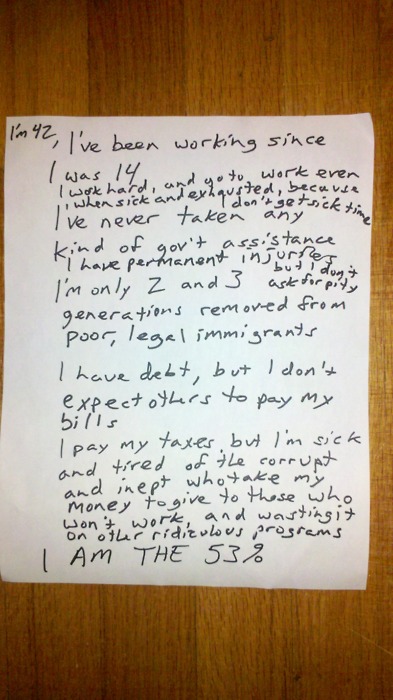 I'm 42, I've been working since
I was 14
I work hard, and go to work even
when sick and exhausted, because
I don't get sick time
I've never taken any
kind of gov't assistance
I have permanent injuries
but I don't
ask for pity
I'm only 2 and 3
generations removed from
poor, legal immigrants
I have debt, but I don't
expect others to pay my
bills
I pay my taxes, but I'm sick
and tired of the corrupt
and inept who take my
money to give to those who
won't work, and wasting it
on other ridiculous programs
I AM THE 53%